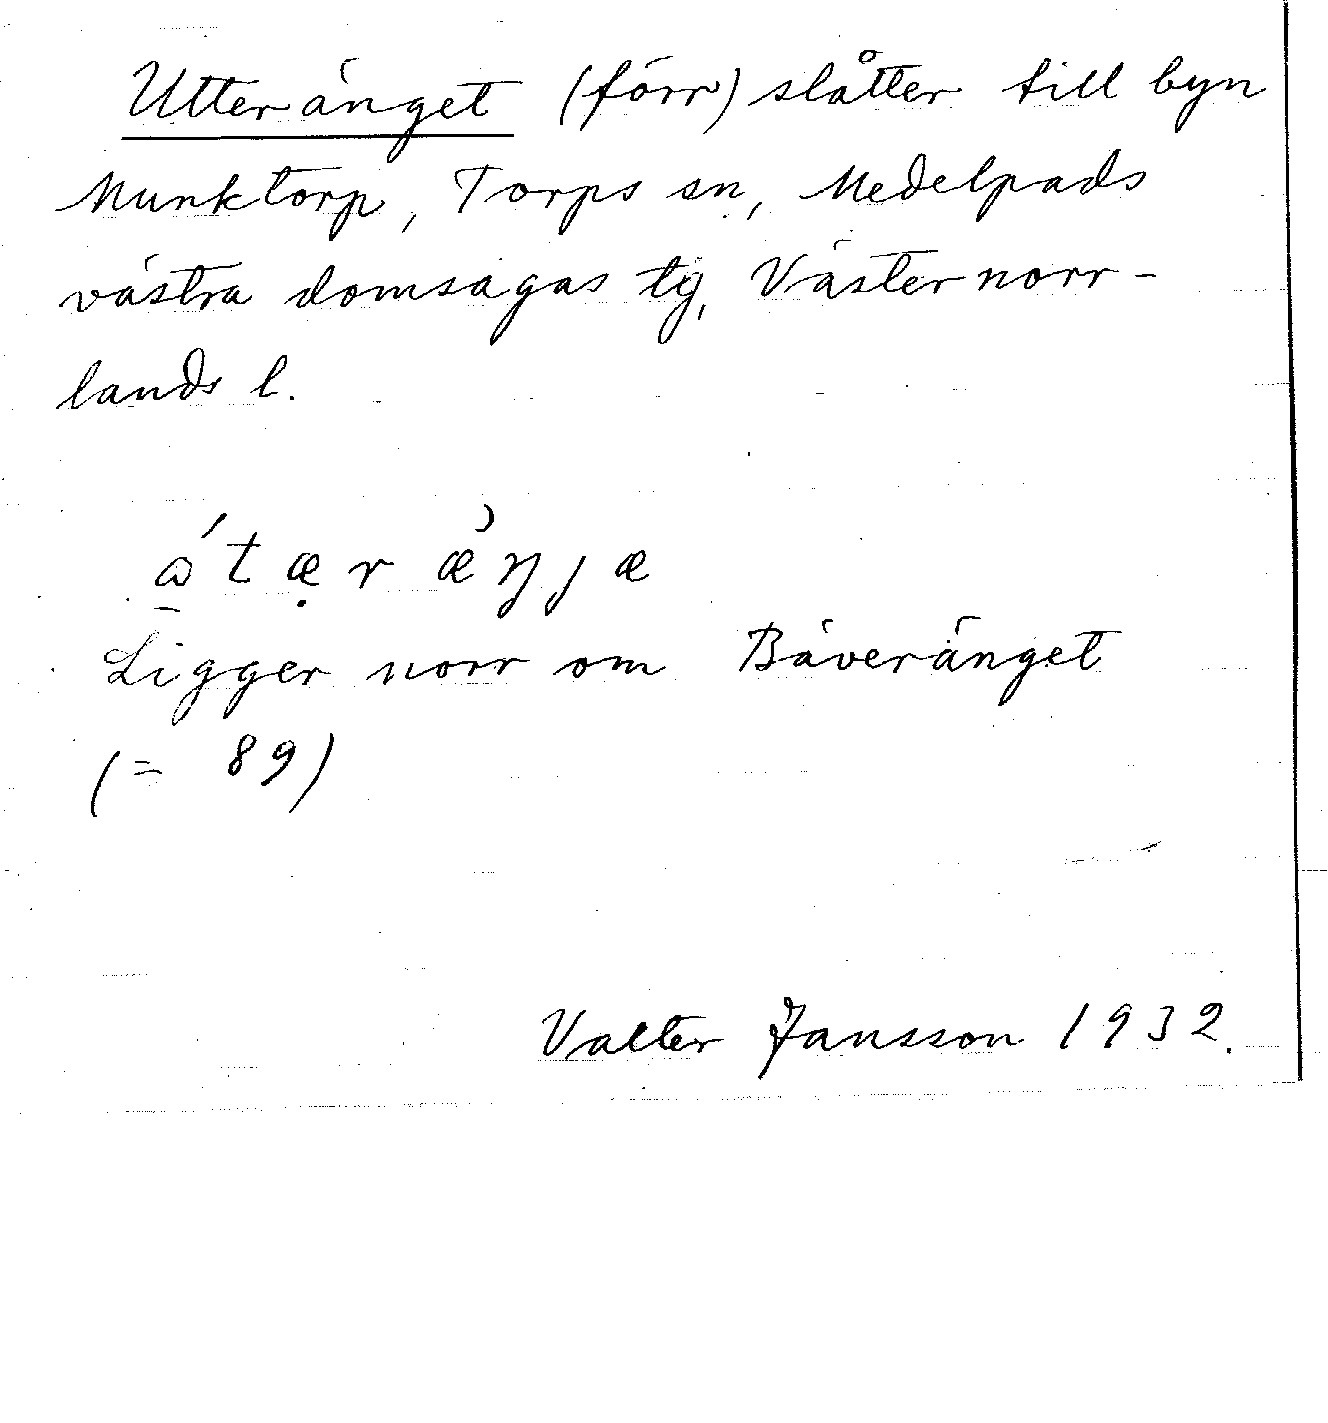 Utteränget (förr) slåtter till byn
Munktorp, Torps sn, Medelpads
västra domsagas tg, Västernorr-
lands l.
Ligger norr om Bäveränget
(= 89)
Valter Jansson 1932.